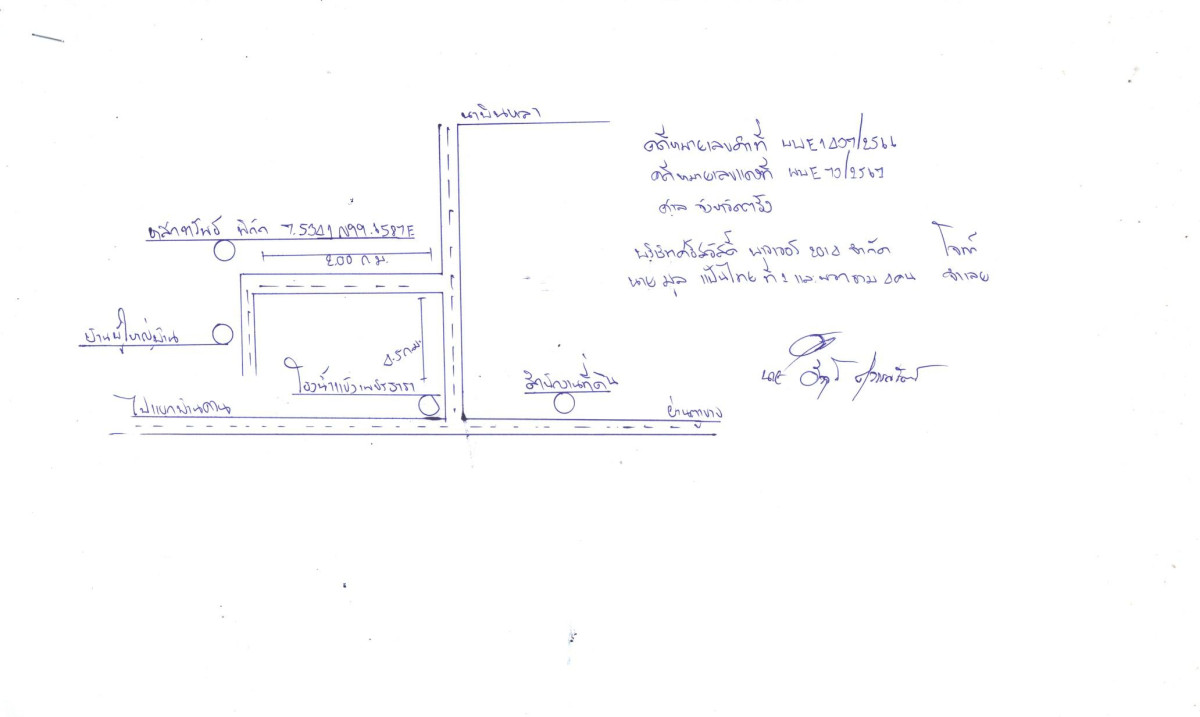 นาบินหลา
คดีหมายเลขดำที่ ผบE1407/2566
คดีหมายเลขแดงที่ ผบE70/2567
ศาล จังหวัดตรัง
พิกัด 7.5341 N99.6587E
200 ก.ม.
บริษัทศรีสวัสดิ์ พาวเวอร์ 2014 จำกัด โจทก์
นาย มูล แป้นไทย ที่ 1 และพวกรวม 4 คน จำเลย
บ้านผู้ใหญ่บ้าน
4.5 กม.
โรงน้ำแข็งเพชรธารา
สำนักงานที่ดิน
ไปแยกบ้านควน
ย่านตาขาว
นาย